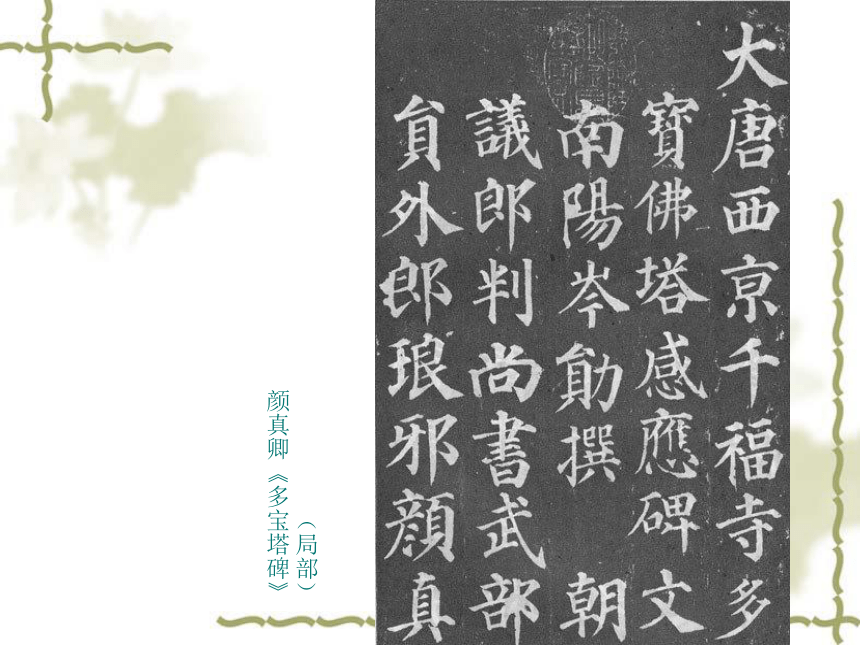 大唐西京千福寺多
寶佛塔感應碑文
南陽岑勛撰 朝
議郎判尚書武部
員外郎琅邪顏真
颜真卿《多宝塔碑》
（局部）